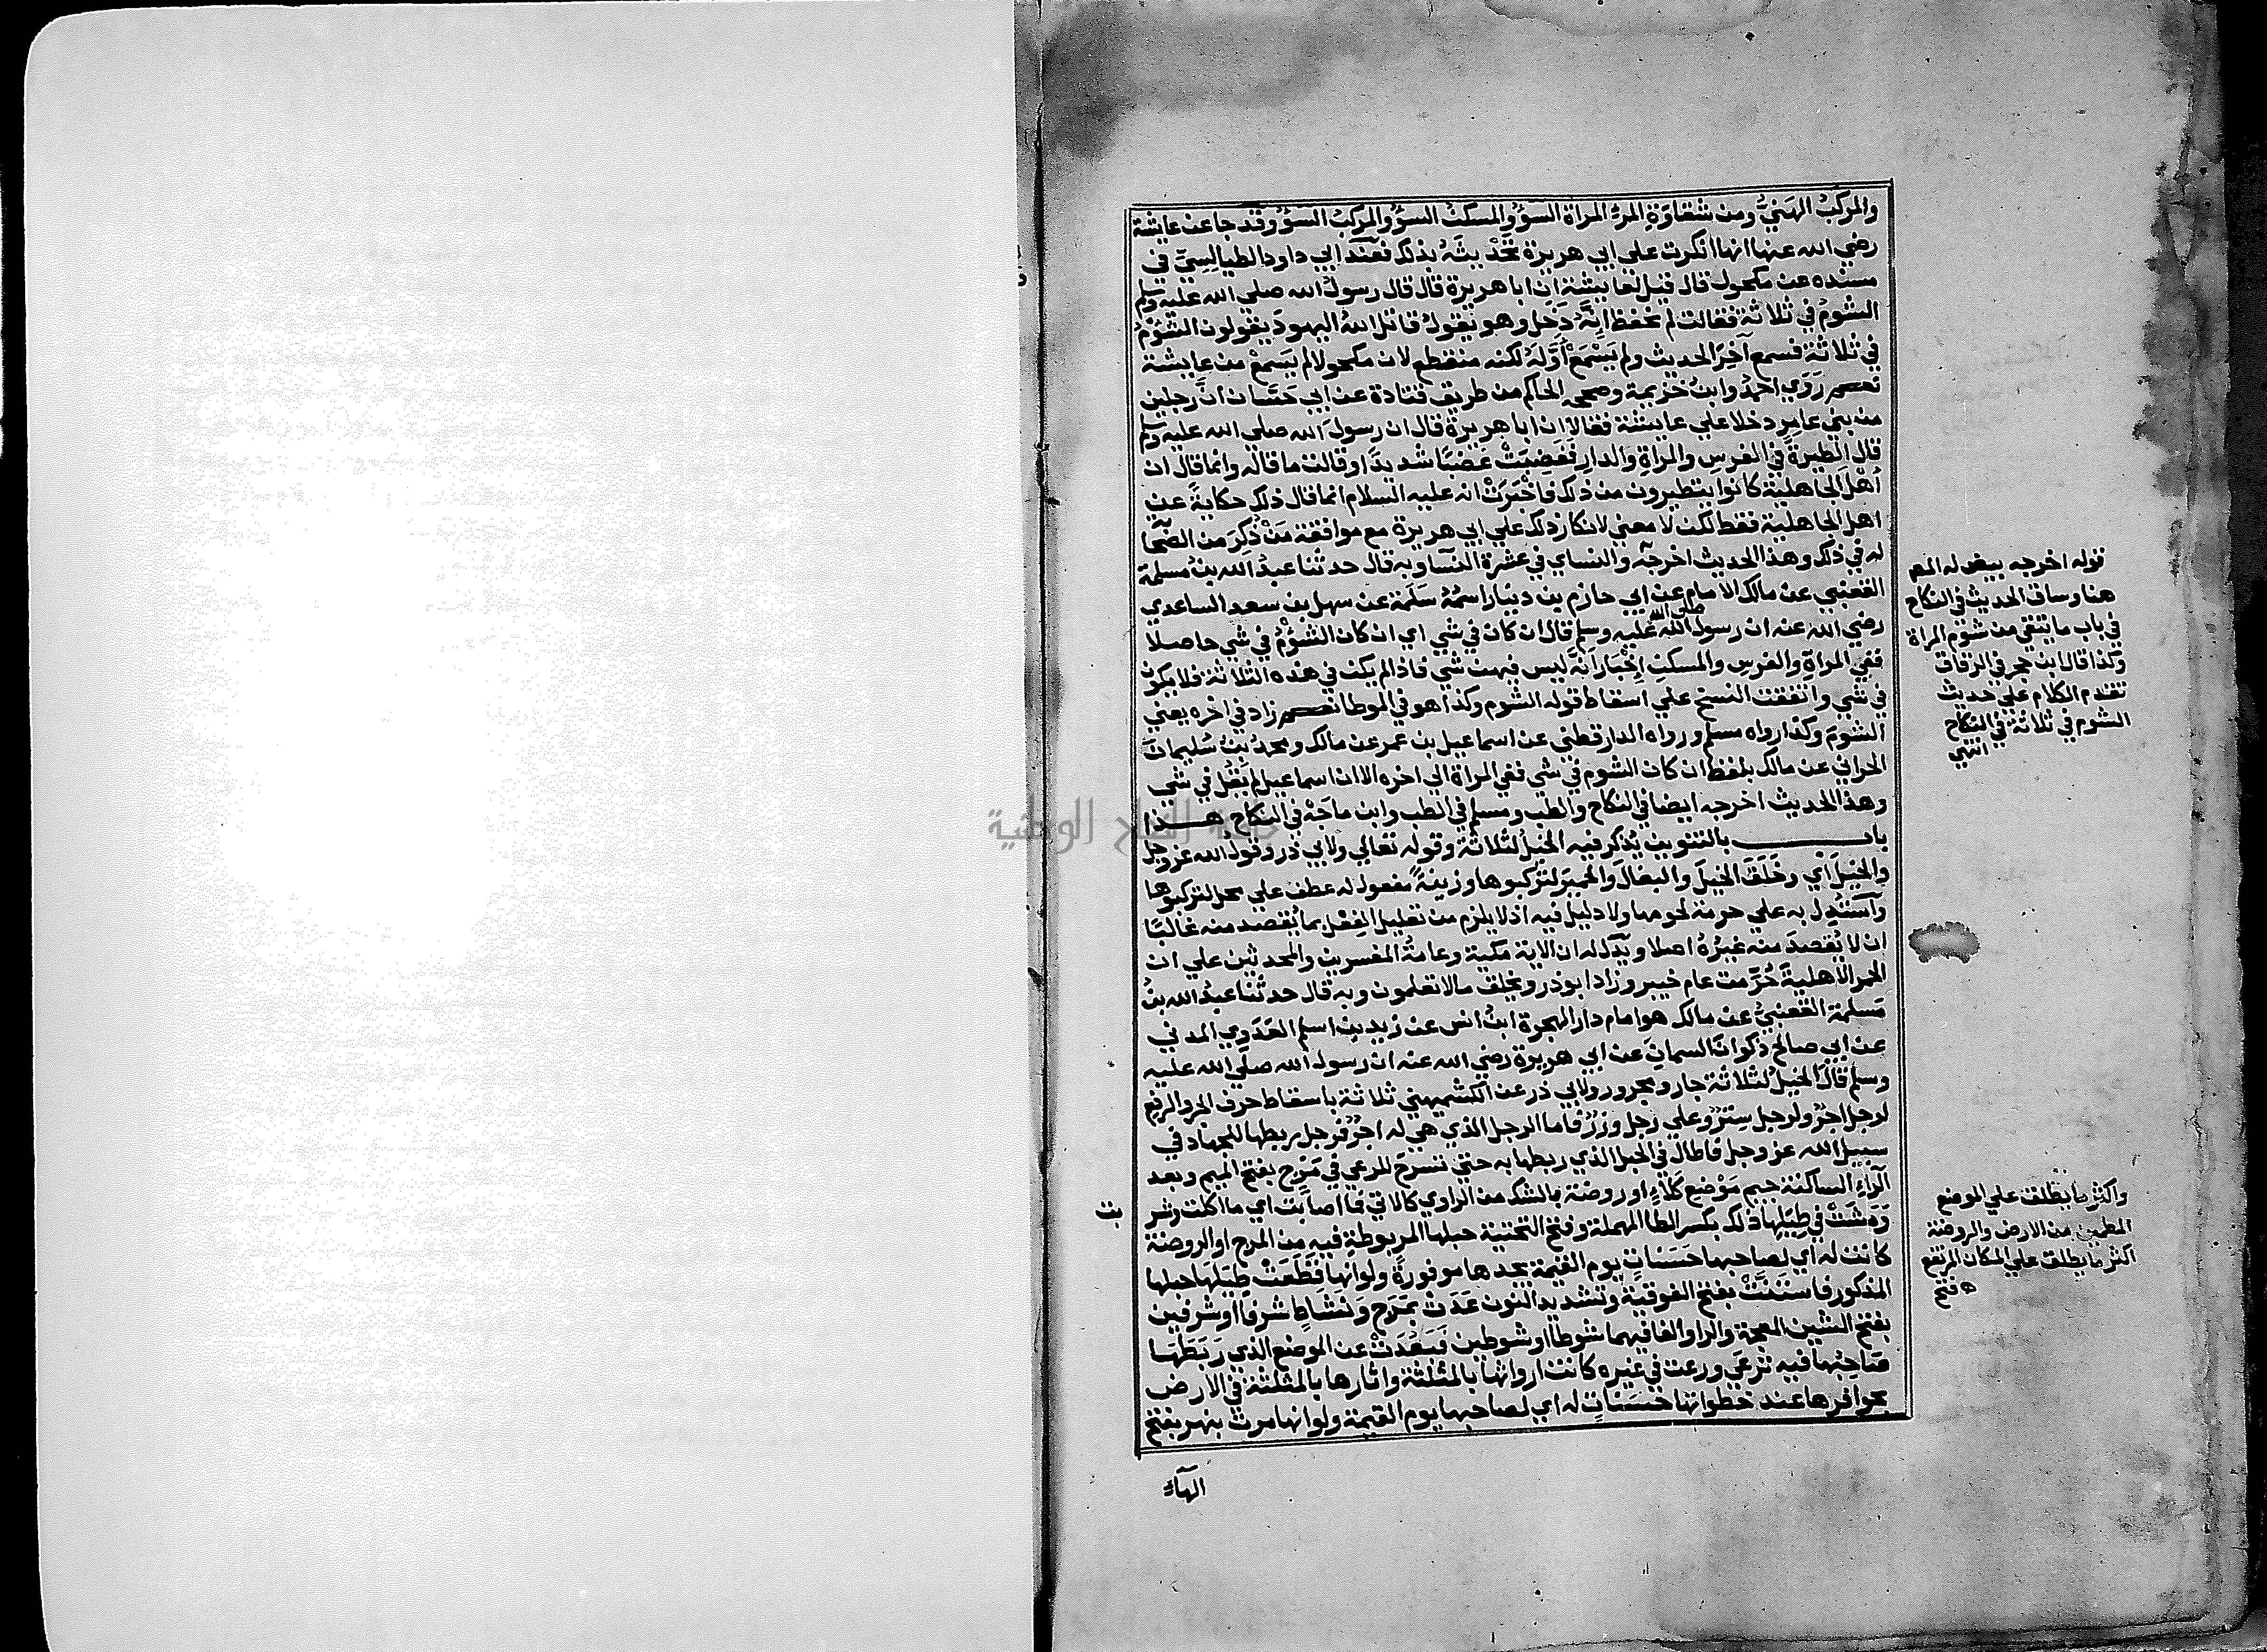 والمركبُ الهَنيُّ ومن شقاوَةِ المرءِ المراة السؤُ والمسكنُ السؤُ والمركبُ السؤُ وقد جا عن عايشة
رضي الله عنها انها انكرت علي ابي هريرة تحْدِيثَهُ بذلك فعند ابي داود الطيالِسيّ في
مسنده عن مكحول قال قيل لعايشة ان ابا هريرة قال قال رسولُ الله صلي الله عليه وسلم
الشومُ في ثلاثة فقالت لم يحفظ انَّه دَخَل وهو يقولُ قاتل اللهُ اليهودَ يقولون الشؤمُ
في ثلاثة فسمع آخِرَ الحديث ولم يَسْمَعْ أوَّلَهُ لكنه منقطع لان مكحولا لم يَسمعْ من عايشة
نعم رَوَي احمدُ وابنُ خزيمة وصححه الحاكم من طريق قتادة عن ابي حَسَّان انَّ رجلين
من بني عامرٍ دخلا علي عايشة فقالا ان ابا هريرة قال ان رسولَ الله صلي الله عليه وسلم
قال الطيرةُ في الفرسِ والمراةِ والدارِ فغَضِبَتْ غضبًا شديدًا وقالت ما قاله وانما قال ان
أهْلَ الجاهلية كانوا يتطيرون من ذلك فاخْبَرَتْ انه عليه السلام انما قال ذلك حكايةً عن
اهل الجاهلية فقط لكن لا معني لانكار ذلك علي ابي هريرة مع موافقة مَنْ ذُكِرَ من الصحابة
له في ذلك وهذا الحديث اخرجه والنساي في عشرة النسآ وبه قال حدثنا عبدُ الله بنُ مسلمة
القعنبي عن مالك الامام عن ابي حازم بن دينار اسمُهُ سَلَمة عن سهل بن سعد الساعدي
رضي الله عنه ان رسولَ الله صلى الله عليه وسلم قال ان كان في شي اي ان كان الشؤْمُ في شي حاصلا
ففي المراةِ والفرسِ والمسكنِ إخْبَارٌ انَّه ليس فيهن شي فاذا لم يكن في هذه الثلاثة فلا يكون
في شي واتفقت النسخ علي اسقاط قوله الشوم وكذا هو في الموطا نعم زاد في اخره يعني
الشومَ وكذا رواه مسلم ورواه الدارقطني عن اسماعيل بن عمر عن مالك ومحمد بنُ سُليمانَ
الحراني عن مالك بلفظ ان كان الشوم في شي ففي المراة الي اخره الا ان اسماعيل لم يَقُل في شي
وهذا الحديث اخرجه ايضا في النكاح والطب ومسلم في الطب وابن ماجَهْ في النكاح هــذا
بابــــ بالتنوين يُذكر فيه الخيلُ لثلاثة وقوله تعالي ولابي ذر وقول الله عز وجل
والخيلَ اي وخَلَقَ الخيلَ والبغالَ والحميرَ لتركبوها وزينةً مفعول له عطف علي محل لتركبوها
وآستُدِل به علي حرمة لحومها ولا دليل فيه اذ لا يلزم من تعليل الفِعْل بما يُقصَد منه غالبًا
ان لا يُقصدَ منه غيرُهُ اصلا ويَدُل له ان الاية مكية وعامةُ المفسرين والمحدثين علي ان
الحمر الاهليةَ حُرِّمت عام خيبر وزاد ابو ذر ويخلق مالا تعلمون وبه قال حدثنا عبدُ الله بنُ
مَسلمة القعنبيُّ عن مالك هو امام دار الهجرة ابنُ انس عن زيد بن اسلم العَدَوِي المدني
عن ابي صالح ذكوانَ السمانِ عن ابي هريرة رضي الله عنه ان رسول الله صلي الله عليه
وسلم قال الخيلُ لثلاثة جار ومجرور ولابي ذر عن الكشميهني ثلاثة باسقاط حرف الجر والرفع
لرجل اجرٌ ولرجل سِترٌ وعلي رجل وزرٌ فاما الرجل الذي هي له اجرٌ فرجل ربطها للجهاد في
سبيل الله عز وجل فاطال في الحبل الذي ربطها به حتي تسرحَ للرعي في مَرْج بفتح الميم وبعد
الراءِ الساكنة جيم مَوْضع كَلاءٍ او روضة بالشك من الراوي كالاتي فما اصابت اي ما اكلت وشر
بت
وَمَشَتْ في طِيَلِها ذلك بكسر الطا المهملة وفتح التحتية حبلها المربوطةِ فيه من المرج او الروضة
كانت له اي لصاحبها حَسَنَاتٍ يوم القيمة يجدها موفورةً ولو انها قَطَعَتْ طِيَلَها حبلها
المذكور فاستَنَّتْ بفتح الفوقية وتشديد النون عَدَتْ بمَرَحٍ ونَشَاطٍ شرفًا او شرفين
بفتح الشين المعجمة والرا والفا فيهما شوطا او شوطين فبَعُدَتْ عن الموضع الذي رَبَطَهَا
صَاحِبُها فيه ترعَي ورعت في غيره كانت ارواثها بالمثلثة واثارها بالمثلثة في الارض
بحوافرها عند خطواتها حَسَنَاتٍ له اي لصاحبها يوم القيمة ولو انها مرت بنهر بفتح
الهآءِ
قوله اخرجه بيض له المص
هنا وساق الحديث في النكاح
في باب ما يتقي من شوم المراة
وكذا قال ابن حجر في الرقاق
تقدم الكلام علي حديث
الشوم في ثلاثة في النكاح
انتهي
واكثر ما يطلق علي الموضع
المطمين من الارض والروضة
اكثر ما يطلق علي المكان المرتفع
ه فتح
جامعة النجاح الوطنية